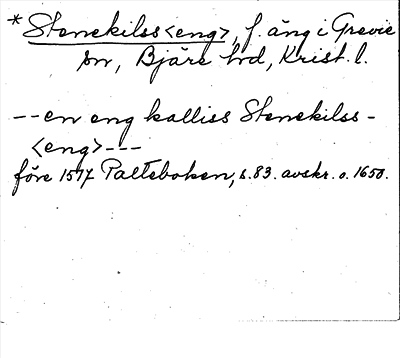 * Stenekilss<eng>, f. äng i Grevie
sn, Bjäre hd, Krist. l.
--en eng kalliss Stenekilss-
<eng>---
före 1577 Palteboken, s. 83. avskr. o. 1650.